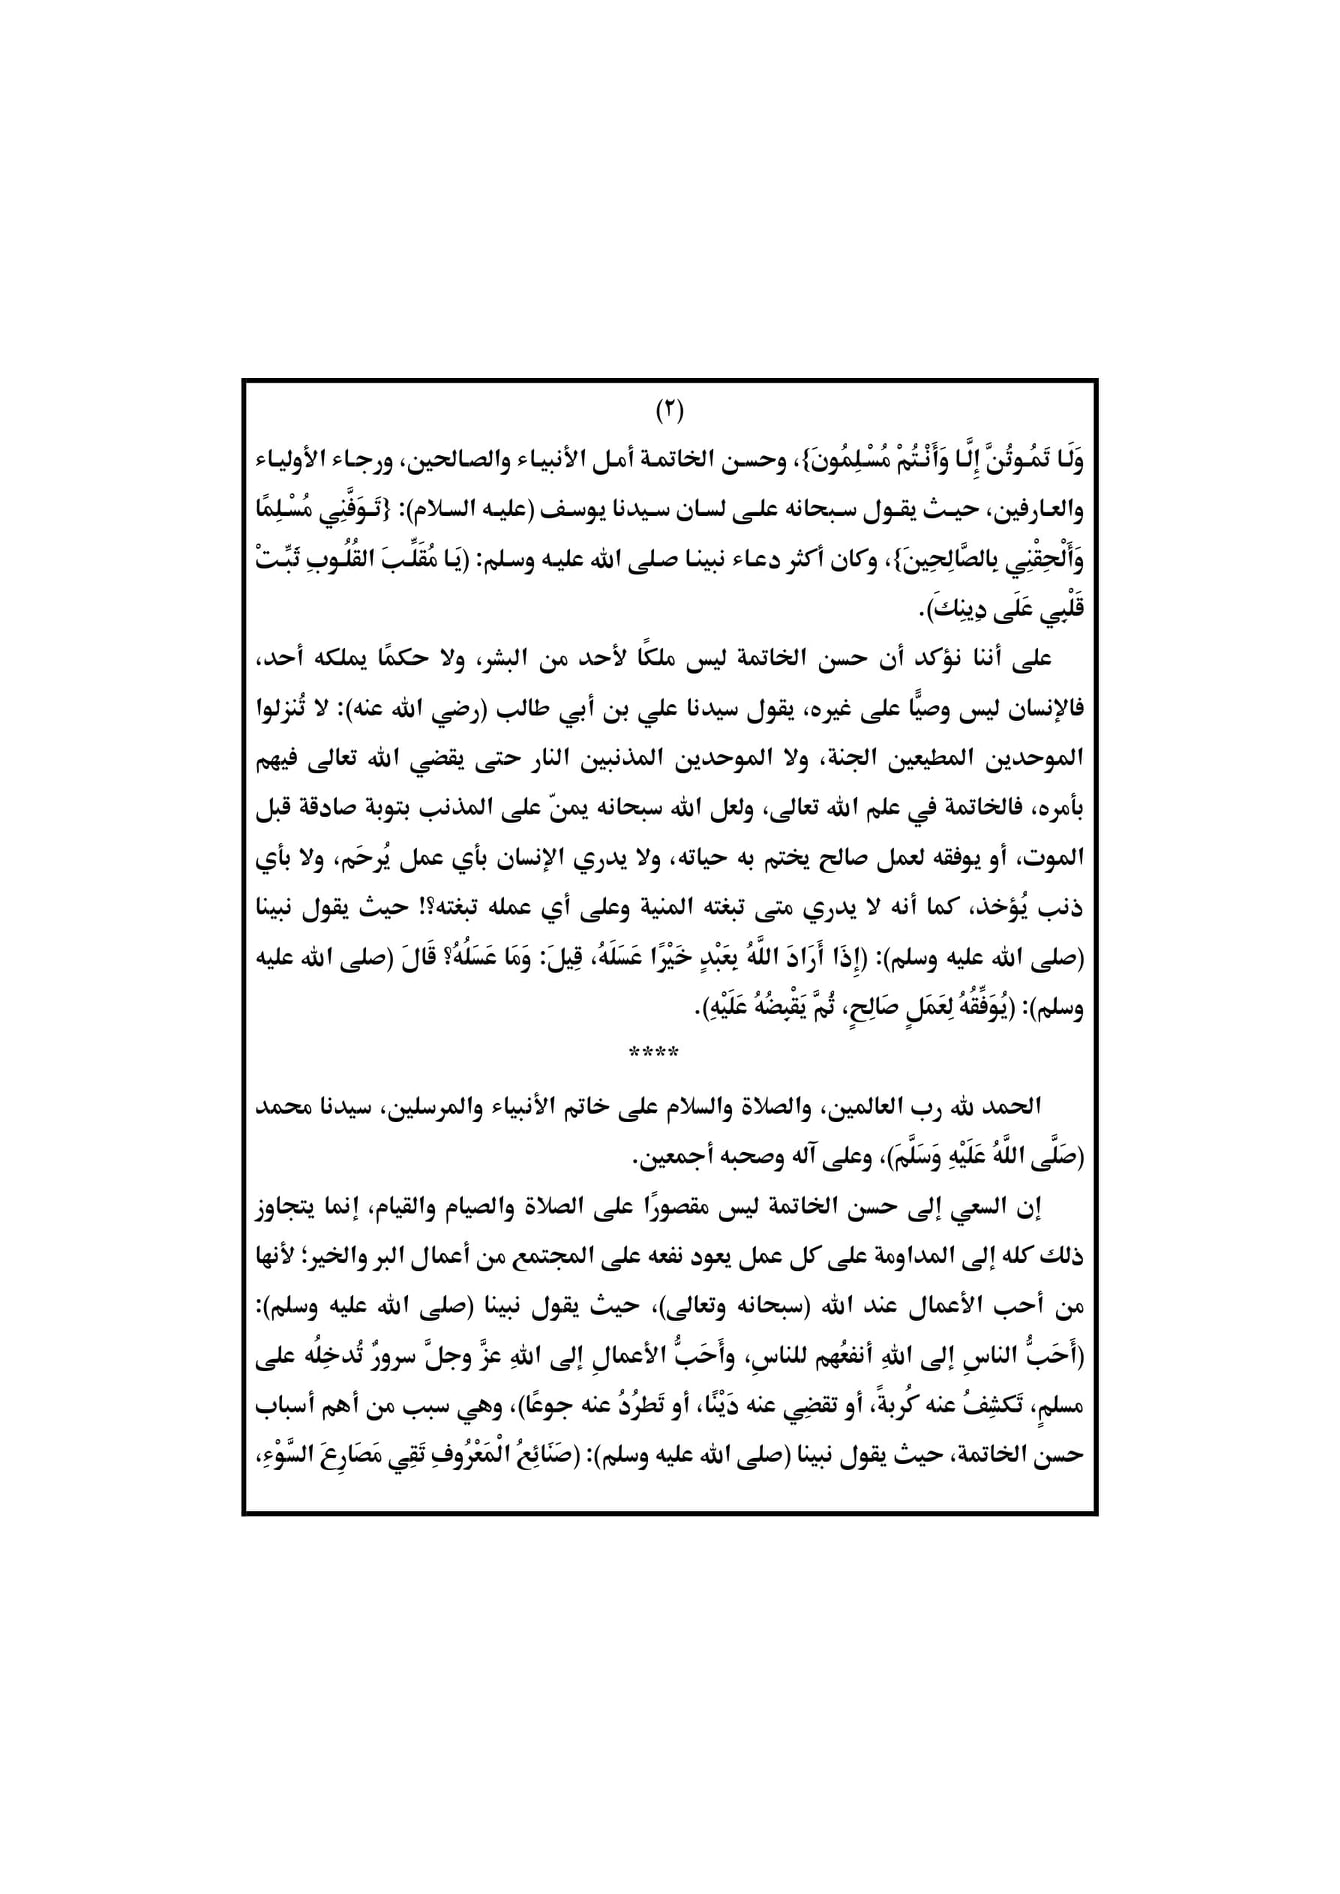 (٢)
وَلَا تَمُوتُنَّ إِلَّا وَأَنْتُمْ مُسْلِمُونَ}، وحسن الخاتمة أمل الأنبياء والصالحين، ورجاء الأولياء
والعارفين، حيث يقول سبحانه على لسان سيدنا يوسف (عليه السلام): {تَوَفَّنِي مُسْلِمًا
وَأَلْحِقْنِي بِالصَّالِحِينَ}، وكان أكثر دعاء نبينا صلى الله عليه وسلم: (يَا مُقَلِّبَ القُلُوبِ ثَبِّتْ
قَلْبِي عَلَى دِينِكَ).
على أننا نؤكد أن حسن الخاتمة ليس ملكًا لأحد من البشر، ولا حكمًا يملكه أحد،
فالإنسان ليس وصيًّا على غيره، يقول سيدنا علي بن أبي طالب (رضي الله عنه): لا تُنزلوا
الموحدين المطيعين الجنة، ولا الموحدين المذنبين النار حتى يقضي الله تعالى فيهم
بأمره، فالخاتمة في علم الله تعالى، ولعل الله سبحانه يمنّ على المذنب بتوبة صادقة قبل
الموت، أو يوفقه لعمل صالح يختم به حياته، ولا يدري الإنسان بأي عمل يُرحَم، ولا بأي
ذنب يُؤخذ، كما أنه لا يدري متى تبغته المنية وعلى أي عمله تبغته؟! حيث يقول نبينا
(صلى الله عليه وسلم): (إِذَا أَرَادَ اللَّهُ بِعَبْدٍ خَيْرًا عَسَلَهُ، قِيلَ: وَمَا عَسَلُهُ؟ قَالَ (صلى الله عليه
وسلم): (يُوَفِّقُهُ لِعَمَلٍ صَالِحٍ، ثُمَّ يَقْبِضُهُ عَلَيْهِ).
****
الحمد لله رب العالمين، والصلاة والسلام على خاتم الأنبياء والمرسلين، سيدنا محمد
(صَلَّى اللَّهُ عَلَيْهِ وَسَلَّمَ)، وعلى آله وصحبه أجمعين.
إن السعي إلى حسن الخاتمة ليس مقصورًا على الصلاة والصيام والقيام، إنما يتجاوز
ذلك كله إلى المداومة على كل عمل يعود نفعه على المجتمع من أعمال البر والخير؛ لأنها
من أحب الأعمال عند الله (سبحانه وتعالى)، حيث يقول نبينا (صلى الله عليه وسلم):
(أَحَبُّ الناسِ إلى اللهِ أنفعُهم للناسِ، وأَحَبُّ الأعمالِ إلى اللهِ عزَّ وجلَّ سرورٌ تُدخِلُه على
مسلمٍ، تَكشِفُ عنه كُربةً، أو تقضِي عنه دَيْنًا، أو تَطرُدُ عنه جوعًا)، وهي سبب من أهم أسباب
حسن الخاتمة، حيث يقول نبينا (صلى الله عليه وسلم): (صَنَائِعُ الْمَعْرُوفِ تَقِي مَصَارِعَ السَّوْءِ،